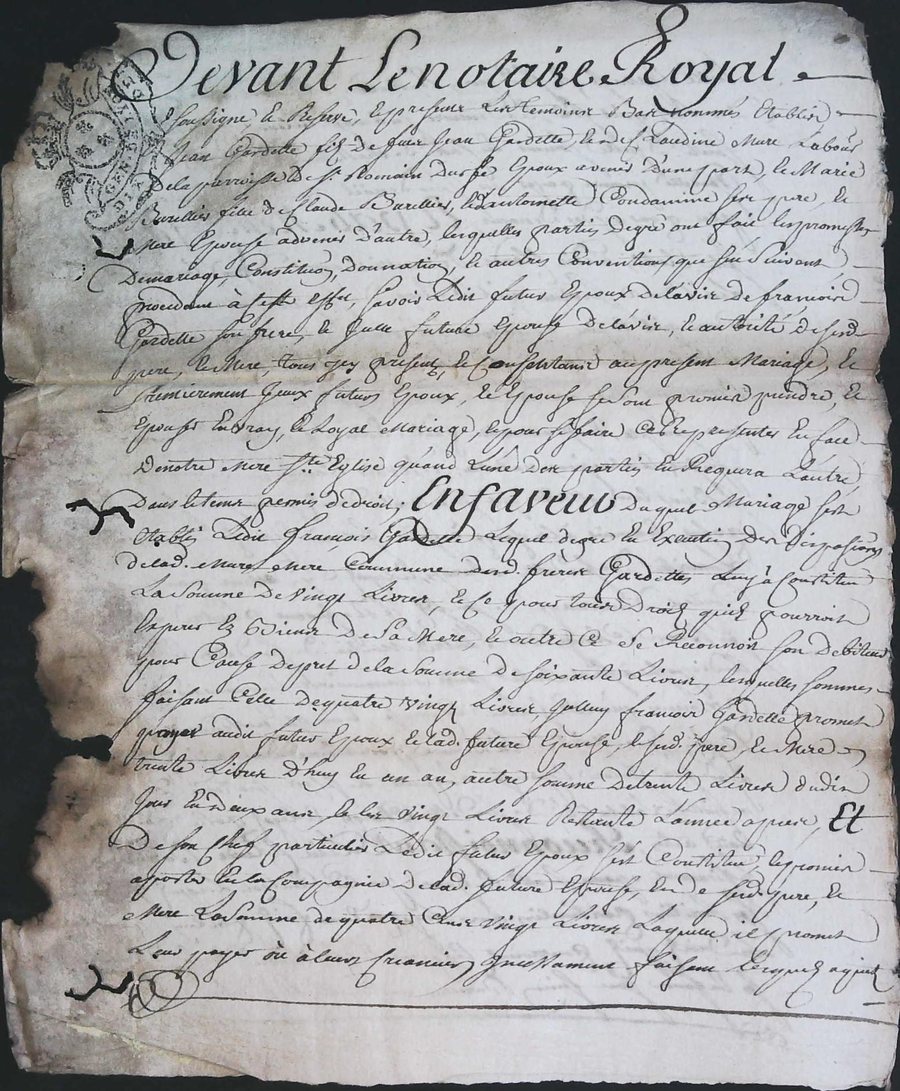 Devant Le notaire Royal
soussigné Et Reservé, Et presents Les temoins Bas nommés Etablis
Jean Gardette fils de feu Jean Gardette, Et de Claudine Mure Labour
de la parroisse de St Romain Epoux avenir d'une part, Et Marie
Burellier fille de Claude Burellier, Et d'antoinette Condamine ses pere, Et
Mere Epouse advenir d'autre, lesquelles parties de gré ont fait les promesses
De mariage, Constitution, Donnation, Et autres Conventions que sen suivent
procedant à cest effet, savoir Ledit futur Epoux de lavis de françois
Gardette son frere, Et Jcelle future Epouse de lavis, Et autorité de sesd
pere, Et Mere tous icy presents, Et Consentants au present Mariage, Et
premierement Jceux futurs Epoux, Et Epouse se sont promis prendre, Et
Epouser En vray, Et Loyal Mariage, Et pour se faire Ce Representer En face
De notre Mere Ste Eglise quand L'une des parties En Requera L'autre,
Dans le temps permis de droit; En faveur Duquel Mariage sest
Etablis Ledit françois Gardette Lequel de gré En Execution des disposions
de lad. Mure Mere Commune desd. freres Gardettes Luy a Constitué
La Somme de vingt Livres, Et Ce pour tous Droits quil pourroit
Esperer Es Biens De Sa Mere, Et outre Ce Se Reconnoit son debiteur
pour Cause de pret de la Somme De soixante Livres, lesquelles sommes
faisant Celle de quatre vingt Livres, Jcelluy françois Gardette promet
payer audit futur Epoux Et lad. future Epouse, Et sesd. pere, Et Mere
trente Livres D'huy En un an, autre somme de trente Livres dudit
Jour En deux ans Et les vingt Livres Restante L'année apres, Et
De son Chef particulier Ledit futur Epoux sest Constitué, Et promis
aporter En la Compagnie de lad. future Epouse, Et de sesd. pere, Et
Mere La Somme de quatre Cens vingt Livres Laquelle il promet
Leur payer où à leurs Creanciers Jncessament faisant